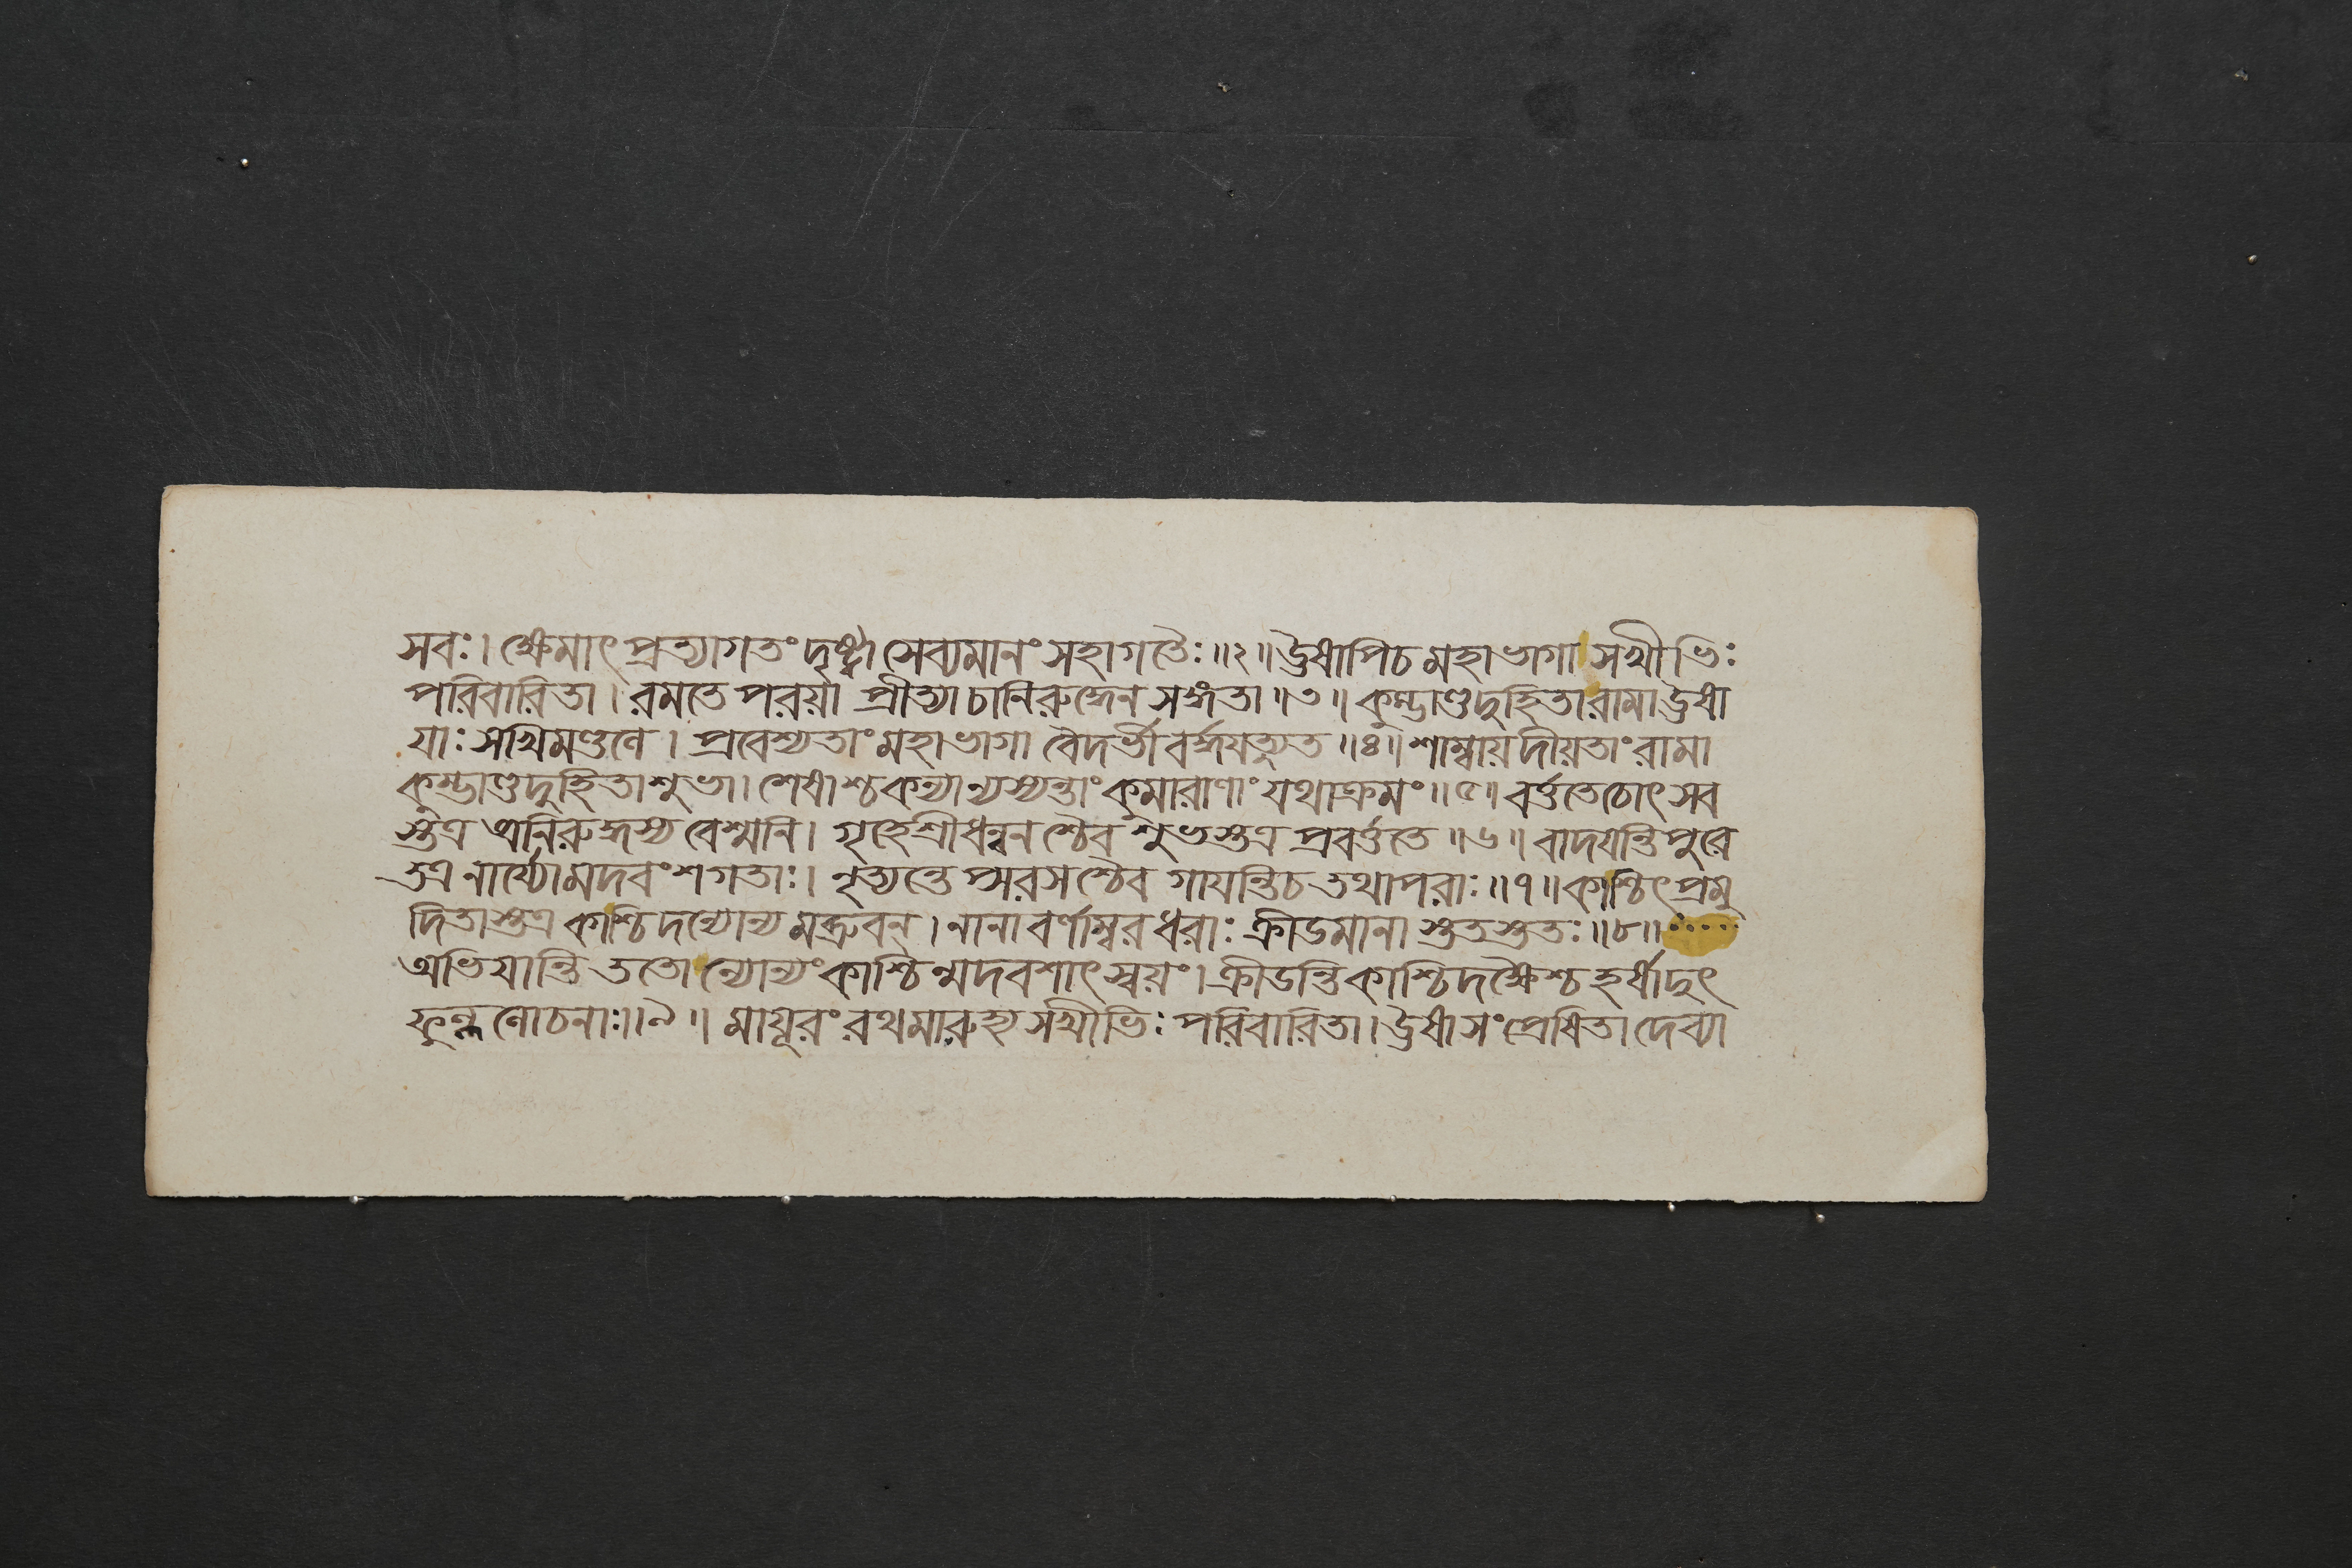 সবঃ। ক্ষেমাৎ প্রত্যাগতং দৃষ্ট্বা সেব্যমানং সহাগতৈঃ॥২॥ ঊষাপি চ মহাভাগা সখীভিঃ
পরিবারিতা। রমতে পরয়া প্রীত্যা চানিরুদ্ধেন সঙ্গতা॥৩॥ কুম্ভাণ্ডদুহিতা রামা ঊষা
যাঃ সখিমণ্ডলে। প্রবেশ্যতাং মহাভাগা বৈদর্ভী বর্দ্ধযত্যুত॥৪॥ শাম্বায় দীয়তাং রামা
কুম্ভাণ্ডদুহিতা শুভা। শেষাশ্চ কন্যা ন্যস্যন্তাং কুমারাণাং যথাক্রমং॥৫॥ বর্ত্ততে চোৎসব
স্তত্র অনিরুদ্ধস্য বেশ্মনি। গৃহে শ্রীধন্বনশ্চৈব শুভস্তত্র প্রবর্ত্ততে॥৬॥ বাদযন্তি পুরে
তত্র নার্য্যো মদবংশগতাঃ। নৃত্যন্তে প্সরসশ্চৈব গাযন্তি চ তথাপরাঃ॥৭॥ কাশ্চিৎ প্রমু
দিতাস্তত্র কাশ্চিদন্যোন্যমব্রুবন্। নানাবর্ণাম্বরধরাঃ ক্রীডমানাস্ততস্ততঃ॥৮॥
অভিযান্তি ততো ন্যোন্যং কাশ্চিন্মদবশাৎ স্বয়ং। ক্রীডন্তি কাশ্চিদক্ষৈশ্চ হর্ষাদুৎ
ফুল্ললোচনাঃ॥৯॥ মায়ূরং রথমারুহ্য সখীভিঃ পরিবারিতা। ঊষা সংপ্রেষিতা দেব্যা